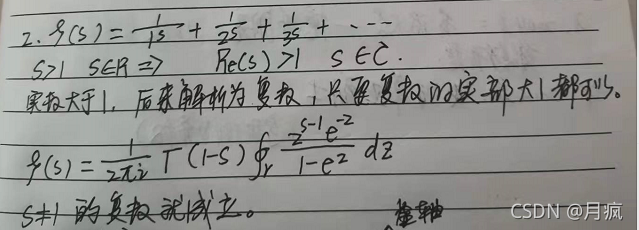 2. ζ(s) = 1/1^s + 1/2^s + 1/3^s + ···
s>1 s∈R ⇒ Re(s)>1 s∈C.
实数大于1, 后来解析为复数, 只要复数的实部大1都可以。
ζ(s) = 1/2πi Γ(1-s) ∮γ z^(s-1) e^-z / 1-e^z dz
s≠1 的复数就成立。
CSDN @月疯